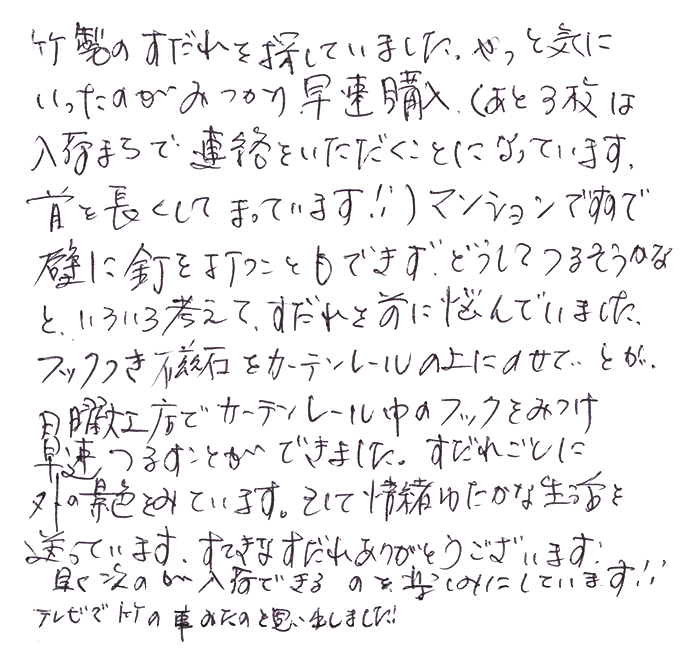 竹製のすだれを探していました。やっと気に
いったのがみつかり早速購入。(あと3枚は
入荷まちで連絡をいただくことになっています。
首を長くしてまっています!!)マンションですので
壁に釘を打つこともできず、どうしてつるそうかな
と、いろいろ考えて、すだれを前に悩んでいました。
フックつき磁石をカーテンレールの上にのせて…とか、
日曜大工店でカーテンレール中のフックをみつけ
早速つるすことができました。すだれごしに
外の景色をみています。そして情緒ゆたかな生活を
送っています。すてきなすだれありがとうございます!
早く次のが入荷できるのを楽しみにしています!!
テレビで竹の車みたのを思い出しました!!